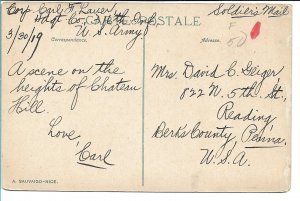 Corp Earl F. Lauer
Hdqt Co.
U.S. Army
3/30/19
CARTE POSTALE
Soldier's Mail
Correspondance.
Adresse.
A scene on the
heights of Chateau
Hill
Love,
Earl
Mrs. David C. Geiger
822 N. 5th St.,
Reading
Berks County, Penna.
U.S.A.
A. SAUVAIGO-NICE.